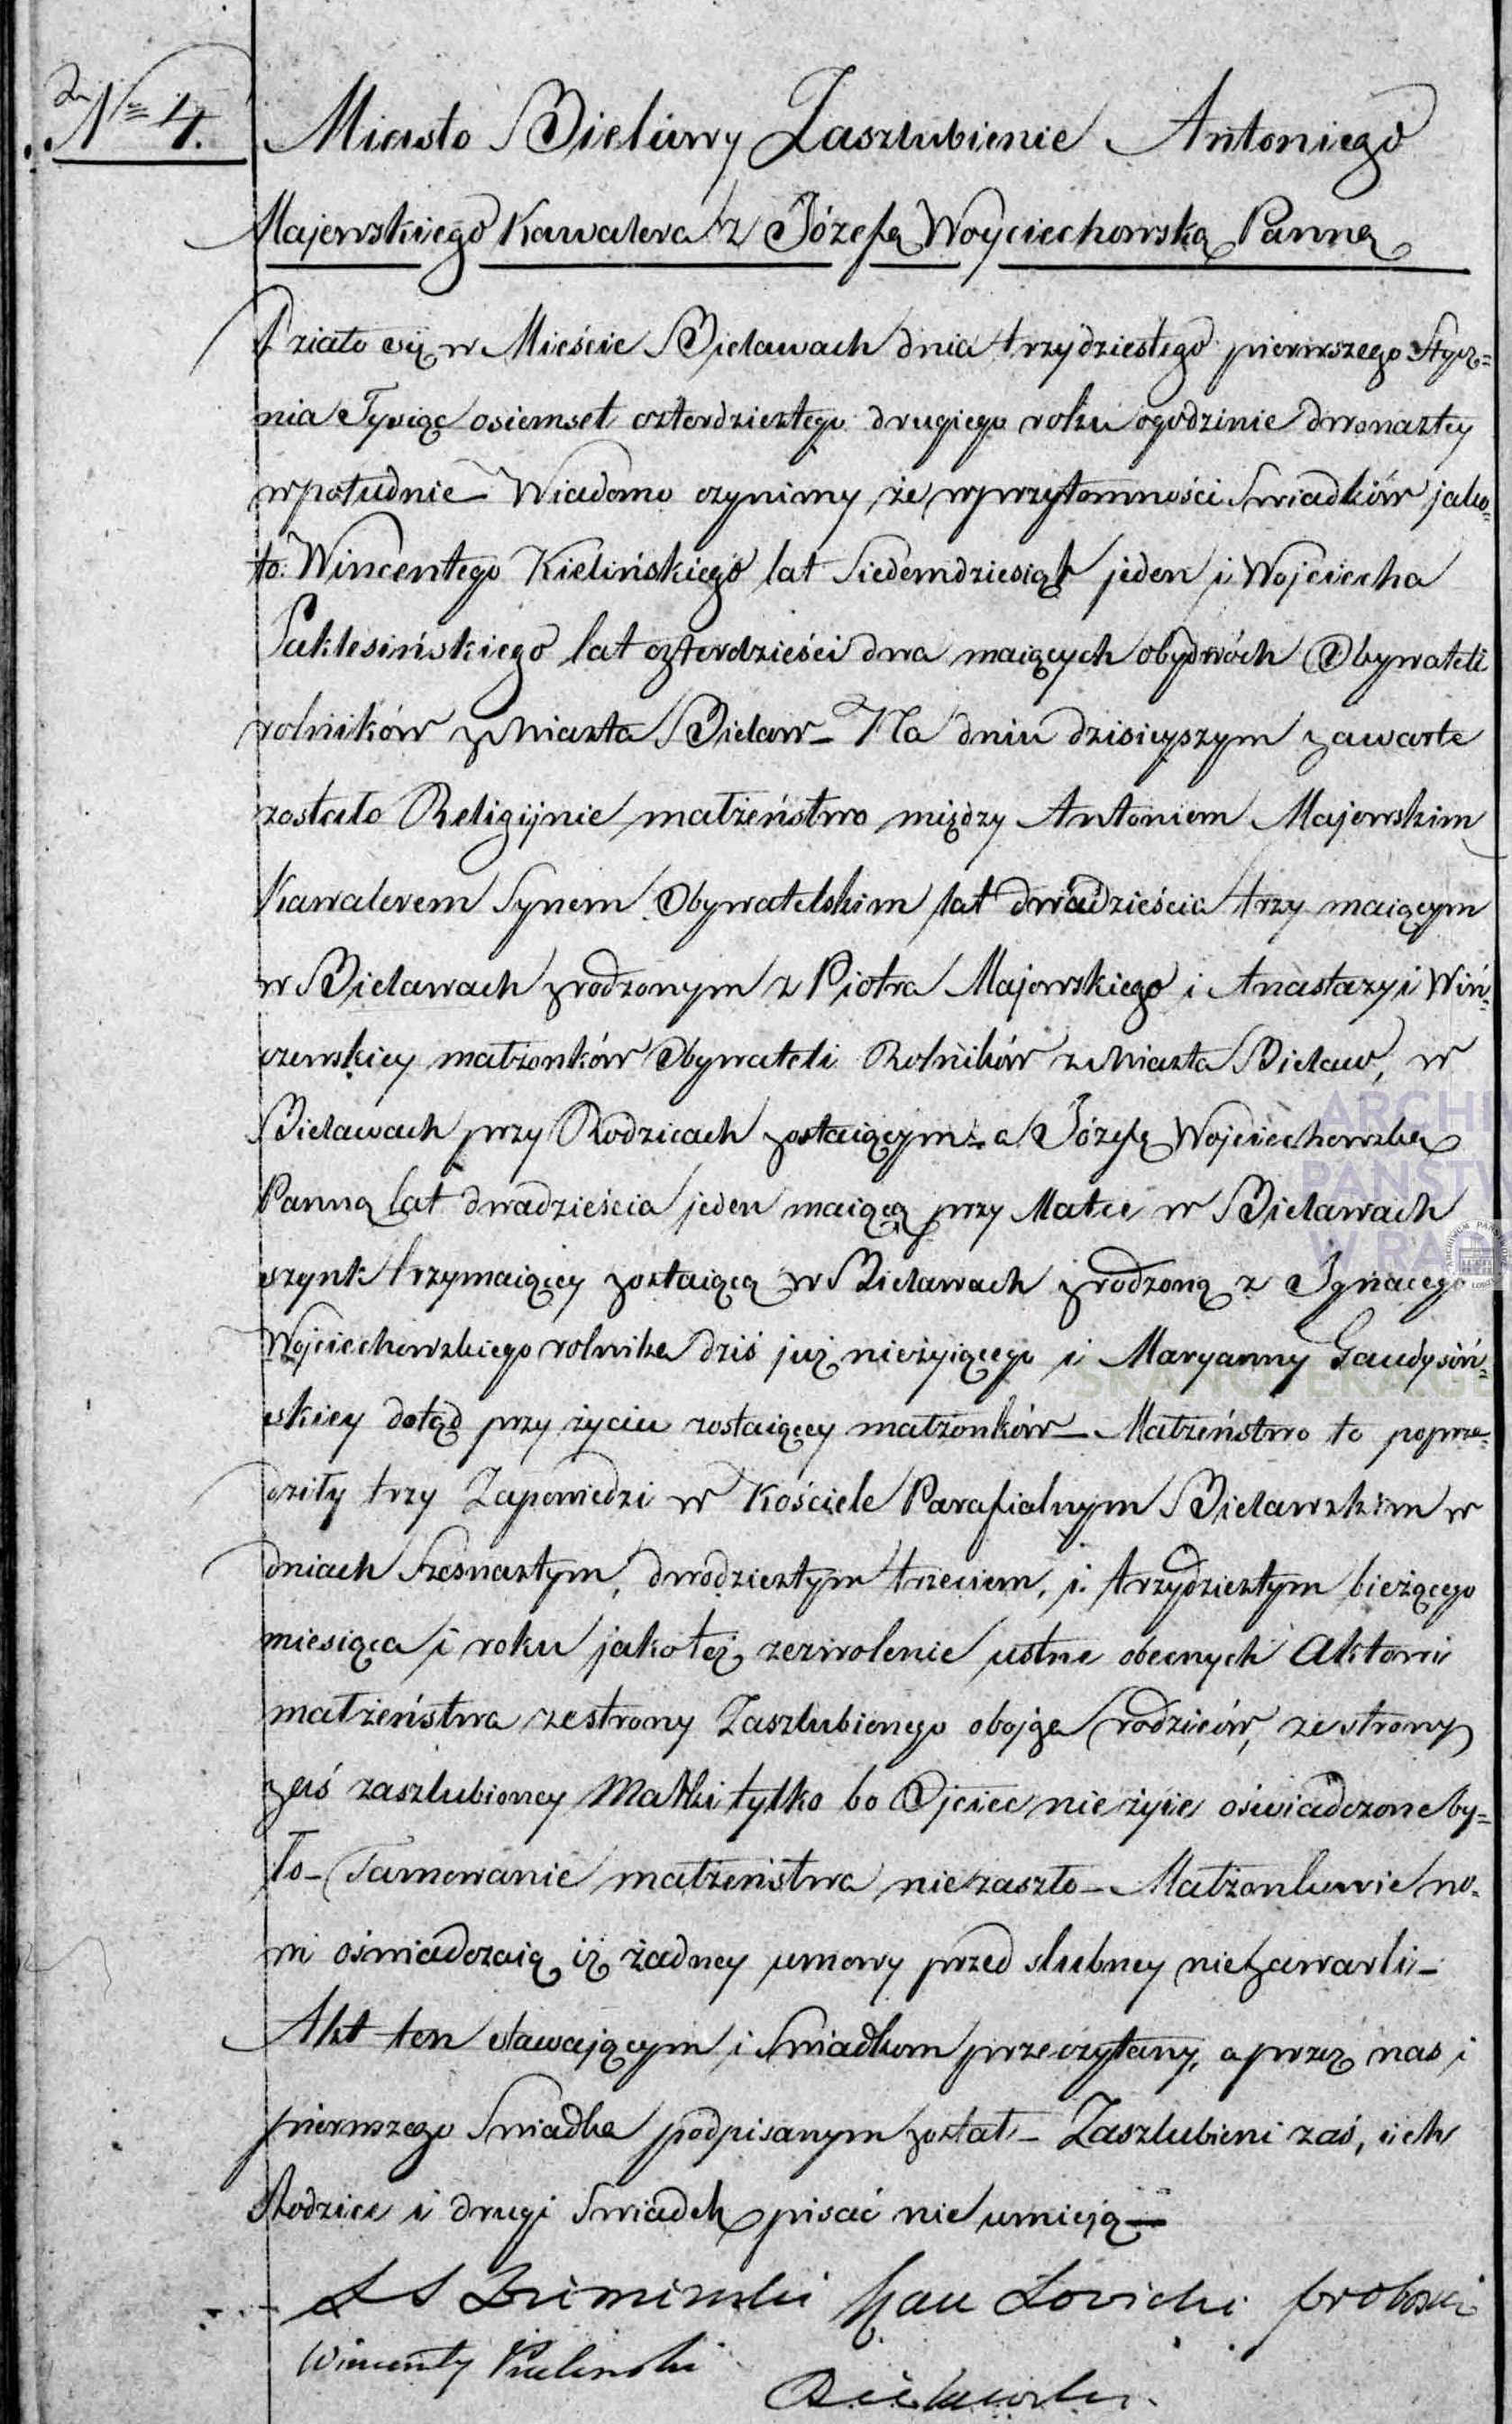 Nro 4.
Miasto Bielawy Zaszlubienie Antoniego
Majewskiego Kawalera z Józefą Woyciechowską Panną
Działo się w Mieście Bielawach dnia trzydziestego pierwszego Stycz=
nia Tysiąc osiemset czterdziestego drugiego roku o godzinie dwunastey
w południe – Wiadomo czynimy że w przytomności Swiadków jako=
to: Wincentego Kielińskiego lat Siedemdziesiąt jeden i Wojciecha
Paklesińskiego lat czterdzieści dwa maiących obydwóch Obywateli
rolników z Miasta Bielaw – Na dniu dzisieyszym zawarte
zostało Religijnie małżeństwo między Antoniem Majewskim
Kawalerem Synem Obywatelskim lat dwadzieścia trzy maiącym
w Bielawach zrodzonym z Piotra Majewskiego i Anastazyi Wiń=
czewskiey małżonków Obywateli Rolników z Miasta Bielaw, w
Bielawach przy Rodzicach zostaiącym – a Józefą Wojciechowską
Panną lat dwadzieścia jeden maiącą przy Matce w Bielawach
szynk trzymaiącey zostaiącą w Bielawach zrodzoną z Ignacego
Wojciechowskiego rolnika dziś już nieżyiącego i Maryanny Gaudysiń=
skiey dotąd przy życiu zostaiącey małżonków – Małżeństwo to poprze=
dziły trzy Zapowiedzi w Kościele Parafialnym Bielawskim w
dniach Szesnastym, dwódziestym trzeciem, i trzydziestym bieżącego
miesiąca i roku jako też zezwolenie ustne obecnych Aktowi
małżeństwa ze strony Zaszlubionego obojga rodziców, ze strony
zaś zaszlubioney Matki tylko bo Ojciec nie żyie oświadczone by=
ło – Tamowanie małżeństwa nie zaszło – Małżonkowie no=
wi oświadczaią iż żadney umowy przed slubney nie zawarli –
Akt ten stawającym i Swiadkom przeczytany, a przez nas i
pierwszego Swiadka podpisanym został – Zaszlubieni zaś, ich
Rodzice i drugi Swiadek pisać nie umieją –
Kan Lovicki probosz
Wincenty Kielinski
Bielawski
ARCHI
PAŃSTW
W RAD
SKANOTEKA.GE